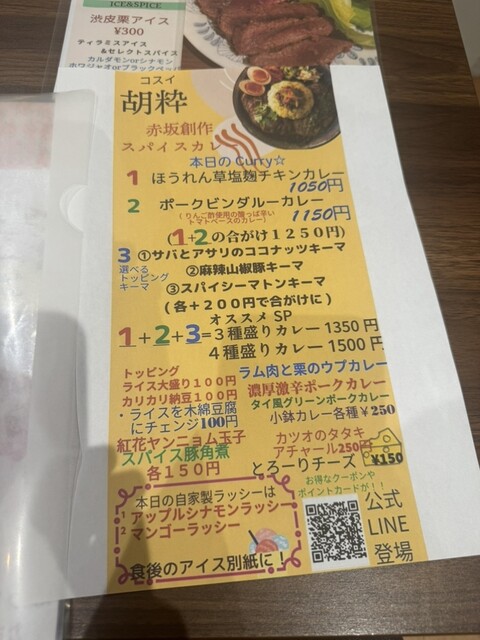 ICE&SPICE
渋皮栗アイス
¥300
ティラミスアイス
&セレクトスパイス
カルダモンorシナモン
ホワジャオorブラックペッパ
コスイ
胡粋
赤坂創作
スパイスカレ
本日のCurry☆
1 ほうれん草塩麹チキンカレー
1050円
2 ポークビンダルーカレー
(りんご酢使用の酸っぱ辛い
トマトベースのカレー)
1150円
(1+2の合がけ1250円)
3 ①サバとアサリのココナッツキーマ
選べる
トッピング
キーマ
②麻辣山椒豚キーマ
③スパイシーマトンキーマ
(各+200円で合がけに)
オススメSP
1+2+3=3種盛りカレー1350円
4種盛りカレー1500円
トッピング
ライス大盛り100円
カリカリ納豆100円
・ライスを木綿豆腐
にチェンジ100円
紅花ヤンニョム玉子
スパイス豚角煮
各150円
ラム肉と栗のウプカレー
濃厚激辛ポークカレー
タイ風グリーンポークカレー
小鉢カレー各種¥250
カツオのタタキ
アチャール250円
とろーりチーズ
¥150
お得なクーポンや
ポイントカードが!!
本日の自家製ラッシーは
1 アップルシナモンラッシー
2 マンゴーラッシー
食後のアイス別紙に!
公式
LINE
登場